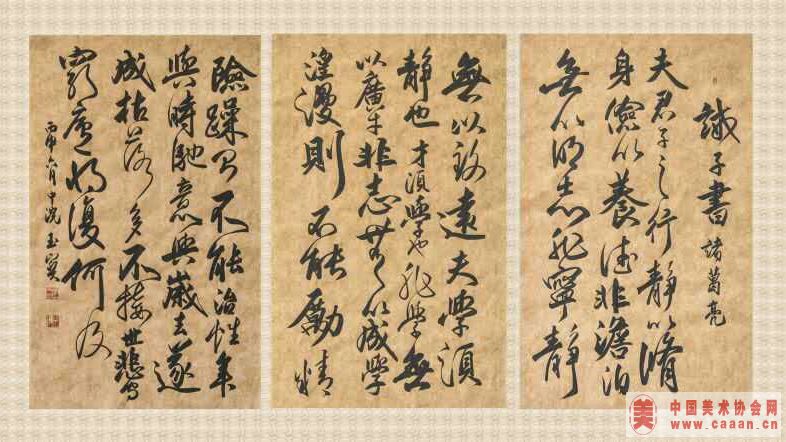 誡子書 諸葛亮
夫君子之行静以脩
身儉以養德非澹泊
無以明志非寧静
無以致遠夫學須
静也才須學也非學無
以廣才非志無以成學
滛漫則不能勵精
險躁則不能治性年
與時馳意與歲去遂
成枯落多不接世悲守
窮廬將復何及
丙申六月中浣玉寶
美
中国美术协会网
www.caaan.cn